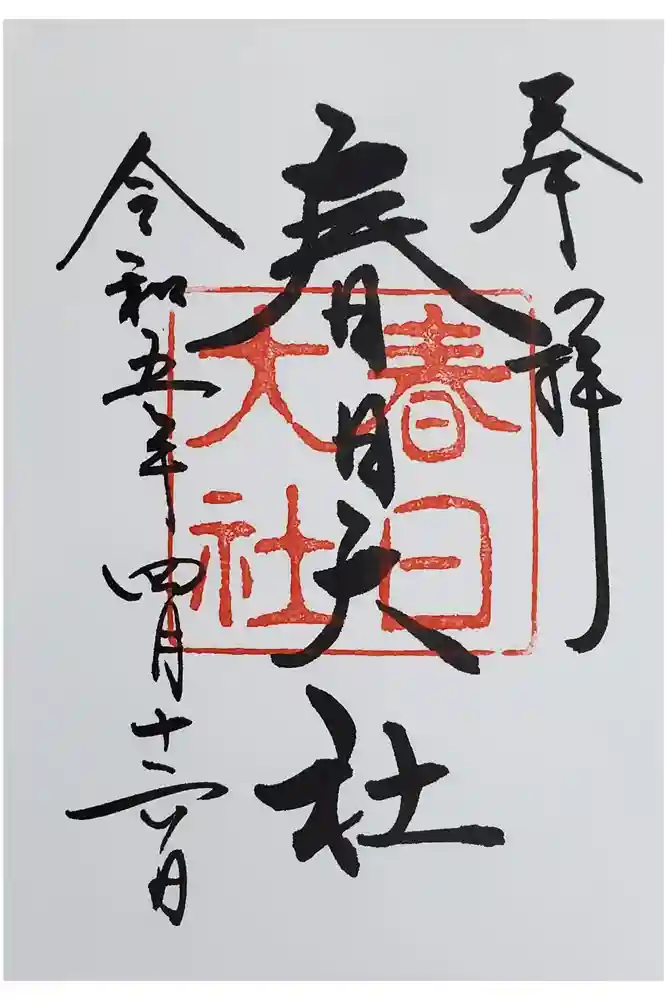 奉拝
春日大社
春日
大社
令和五年四月十六日